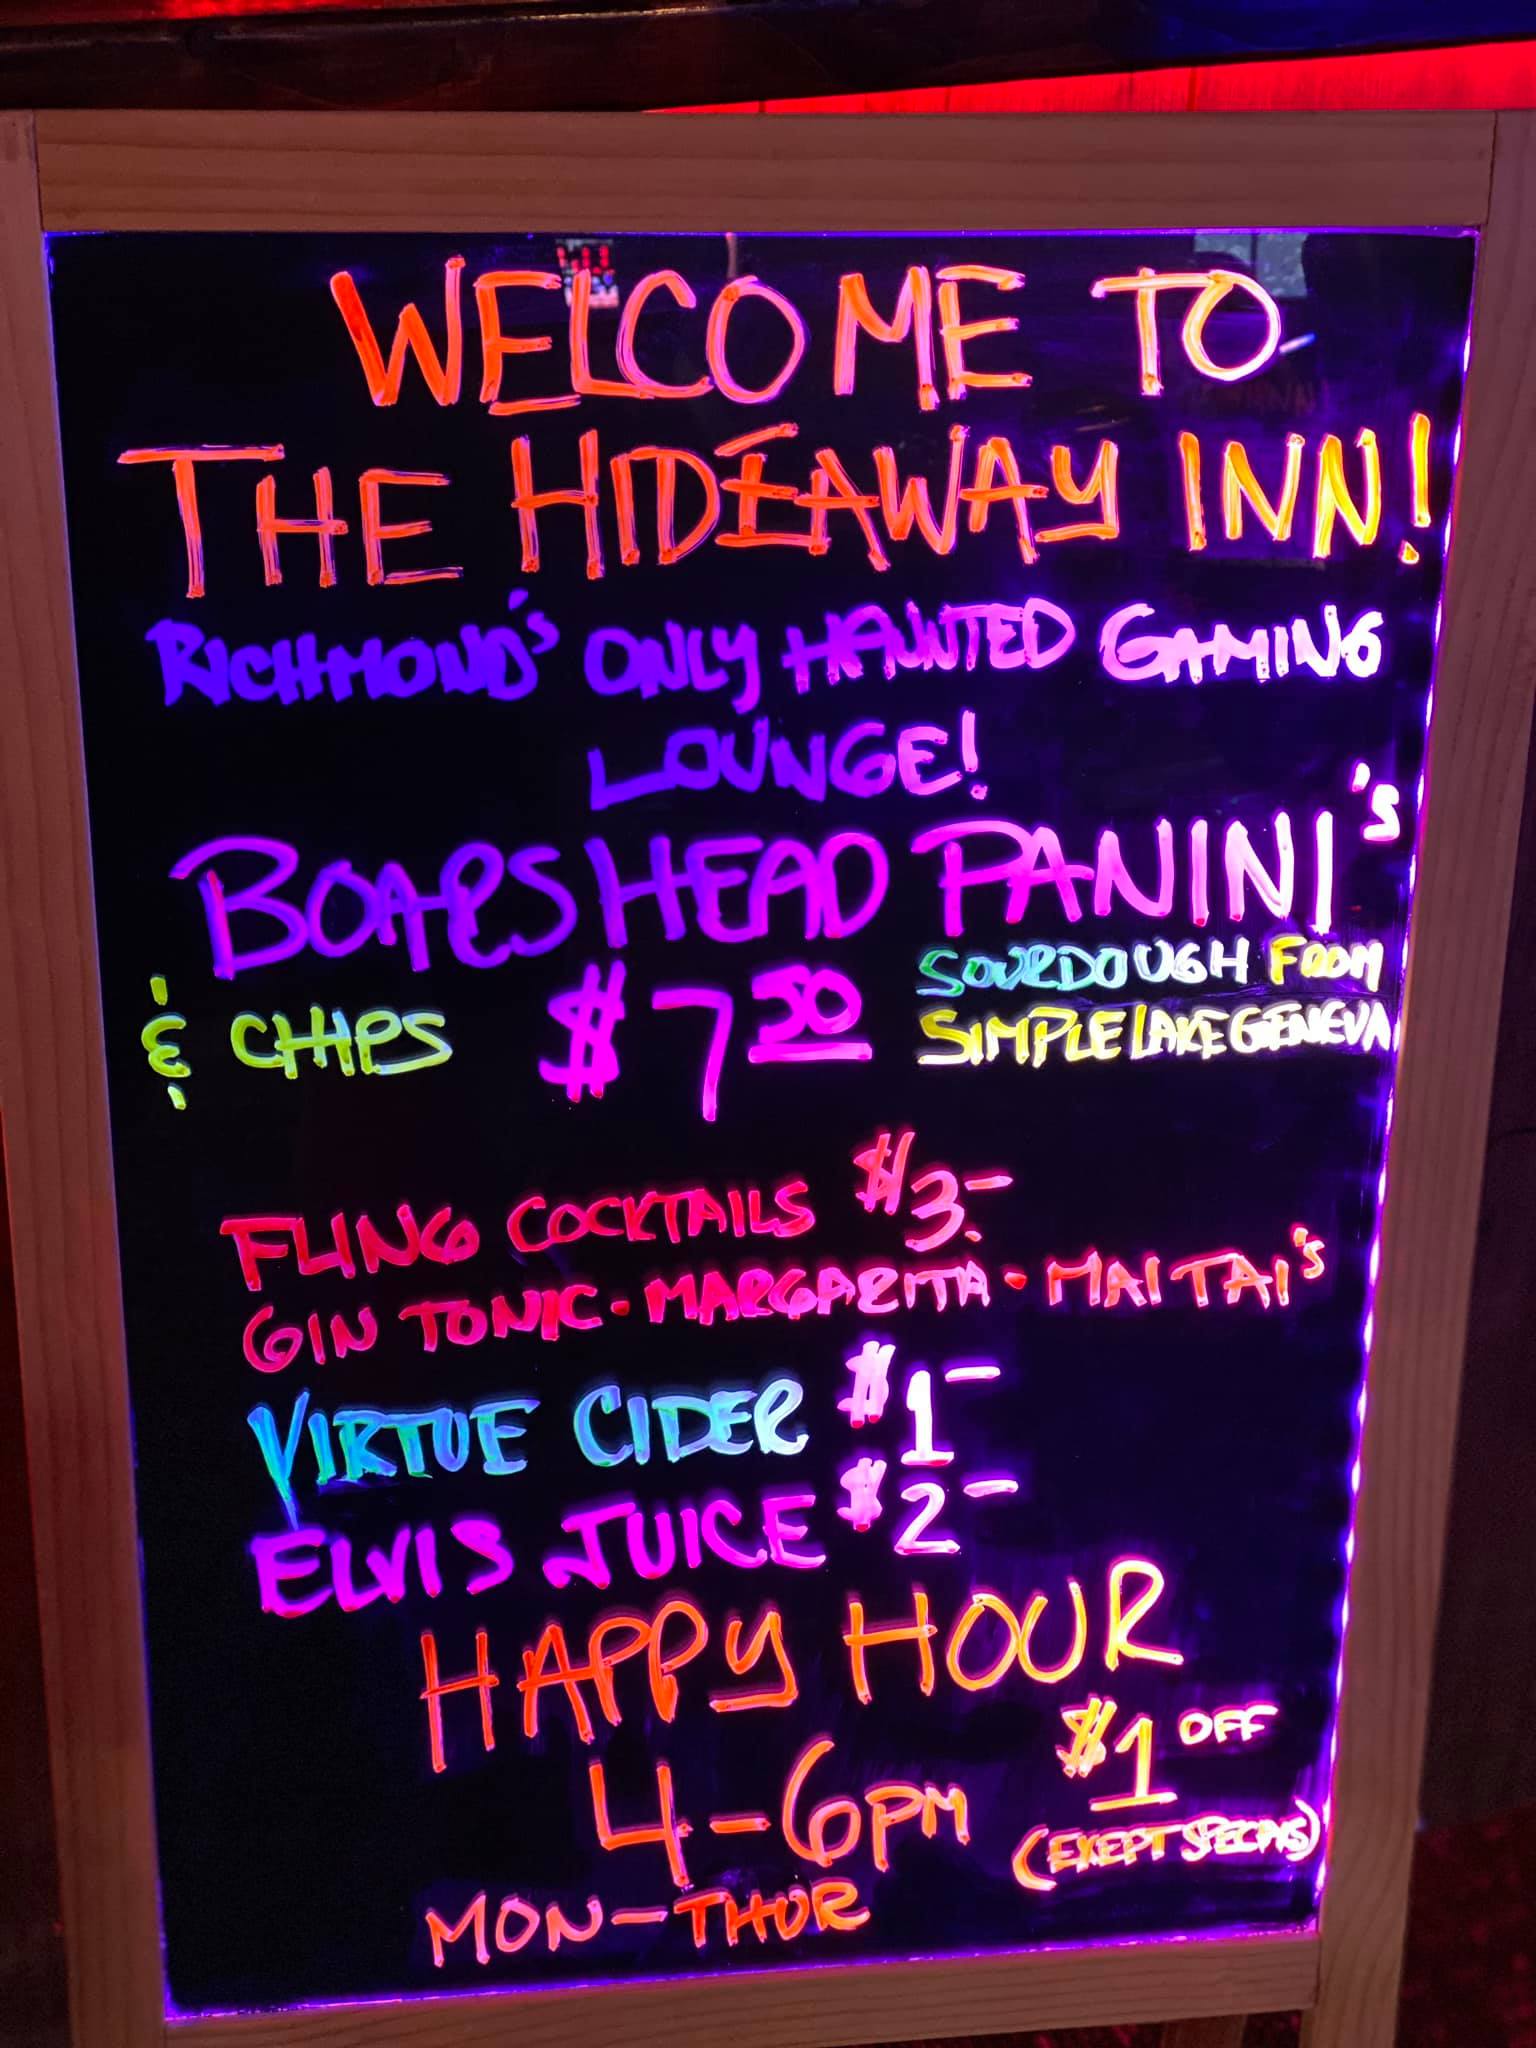 WELCOME TO
THE HIDEAWAY INN!
RICHMOND'S ONLY HAUNTED GAMING
LOUNGE!
BOARSHEAD PANINI'S
& CHIPS $7.50 SOURDOUGH FROM
SIMPLE LAKE GENEVA
FLING COCKTAILS $3.-
GIN TONIC · MARGARITA · MAI TAI'S
VIRTUE CIDER $1-
ELVIS JUICE $2-
HAPPY HOUR
4-6PM $1 OFF
(EXEPT SPECIALS)
MON-THUR